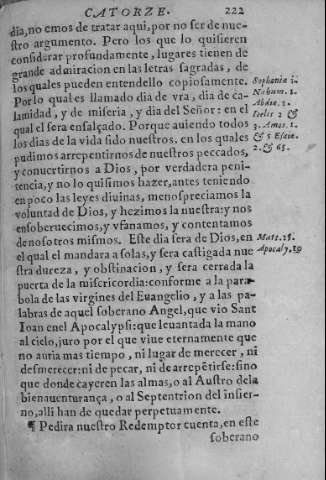 CATORZE. 222
dia, no emos de tratar aqui, por no ser de nue-
stro argumento. Pero los que lo quisieren
considerar profundamente, lugares tienen de
grande admiracion en las letras sagradas, de
los quales pueden entendello copiosamente.
Por lo qual es llamado dia de yra, dia de ca-
lamidad, y de miseria, y dia del Señor: en el
qual el sera ensalçado. Porque auiendo todos
los dias de la vida sido nuestros, en los quales
pudimos arrepentirnos de nuestros peccados,
y conuertirnos a Dios, por verdadera peni-
tencia, y no lo quisimos hazer, antes teniendo
en poco las leyes diuinas, menospreciamos la
voluntad de Dios, y hezimos la nuestra: y nos
ensoberuecimos, y vfanamos, y contentamos
de nosotros mismos. Este dia sera de Dios, en
el qual el mandara a solas, y sera castigada nue
stra dureza, y obstinacion, y sera cerrada la
puerta de la misericordia: conforme a la para-
bola de las virgines del Euangelio, y a las pa-
labras de aquel soberano Angel, que vio Sant
Ioan enel Apocalypsi: que leuantada la mano
al cielo, juro por el que viue eternamente que
no auria mas tiempo, ni lugar de merecer, ni
desmerecer: ni de pecar, ni de arrepētirse: sino
que donde cayeren las almas, o al Austro dela
bienauenturança, o al Septentrion del infier-
no, alli han de quedar perpetuamente.
¶ Pedira nuestro Redemptor cuenta, en este
soberano
Sophaniæ 1.
Nahum. 1.
Abdiæ. 1.
Ioelis 2 &
3. Amos 1.
& 5 Esaie.
2. & 65.
Mat. 25.
Apocaly. 10